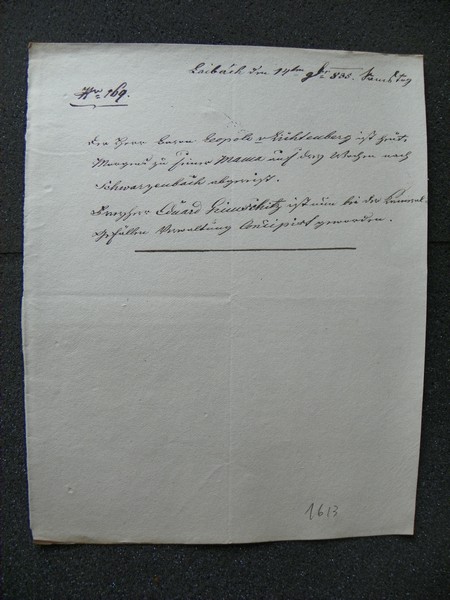 Laibach den 14ten 838. Samstag
Nro 169.
Der Herr Baron Leopold v Lichtenberg ist heute
Morgens zu seiner Mama auf drey Wochen nach
Schwarzenbach abgereist.
Eduard ist nun bei der Cameral
Gefällen Verwaltung Concipist geworden.
1613